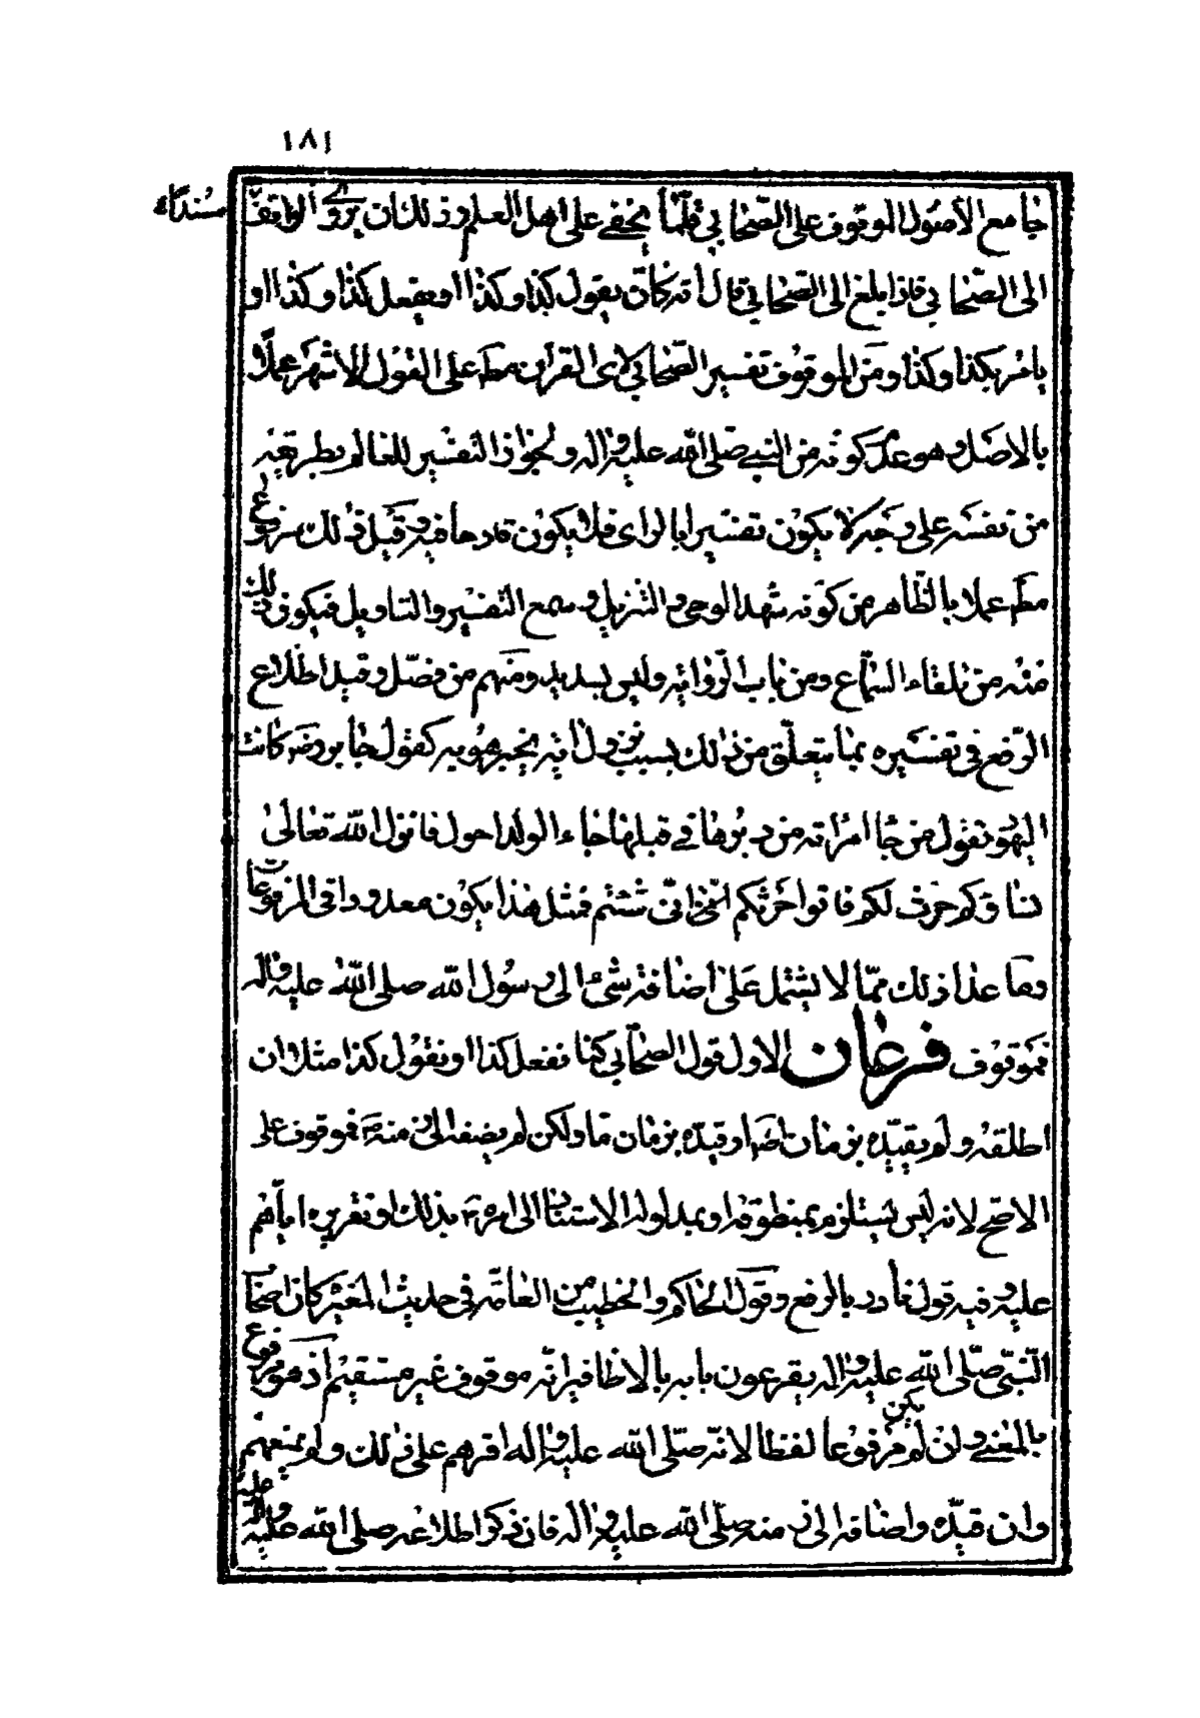 ١٨١
جامع الأصول الموقوف على الصّحابي قلّما يخفى على أهل العلم وذلك ان يروى الواقف مسنداً
الى الصّحابي فاذا بلغ الى الصّحابي قال انّه كان يقول كذا وكذا او يفعل كذا وكذا او
يامر بكذا وكذا ومن الموقوف تفسير الصّحابي لاى القران مطـ على القول الاشهر عملا
بالاصل وهو عدم كونه من النبي صلّى الله عليه واله ولجواز التفسير للعالم بطريقه
من نفسه على وجه لا يكون تفسيرا بالراى فلا يكون قادحا فيه وقيل ذلك مرفوع
مطـ عملا بالظّاهر من كونه شهد الوحى والتنزيل وسمع التفسير والتاويل فيكون ذلك
منه من تلقاء السّماع ومن باب الرّواية وليس بسديد ومنهم من فصّل وقيد اطلاع
الرّفع فى تفسيره بما يتعلّق من ذلك بسبب نزول اية يخبر هو به كقول جابر رضه كانت
اليهود تقول من جا امراته من دبرها فى قبلها جاء الولد احول فانزل الله تعالى
نساؤكم حرث لكم فاتوا حرثكم انّى شئتم فمثل هذا يكون معدودا فى المرفوعات
وما عدا ذلك ممّا لا يشتمل على اضافة شىء الى رسول الله صلى الله عليه واله
فموقوف فرعان الاول قول الصّحابي كنا نفعل كذا او نقول كذا مثلا ان
اطلقه ولم يقيّده بزمان او قيّده بزمان ما ولكن لم يضفه الى زمنه فموقوف على
الاصّح لانه ليس يستلزم بمنطوقه او بمدلوله الاستناد الى امره بذلك او تقريره اياهم
عليه وفيه قول نادر بالرفع وقول الحاكم والخطيب من العامّة فى حديث المغيرة كان اصحاب
النّبىّ صلّى الله عليه واله يقرعون بابه بالاظافير انّه موقوف غير مستقيم اذ هو مرفوع
بالمعنى وان لم يكن مرفوعا لفظا لانه صلّى الله عليه واله اقرهم على ذلك ولم يمنعهم
وان قيّده واضافه الى زمنه صلّى الله عليه واله فان ذكر اطلاعه صلى الله عليه واله عليه